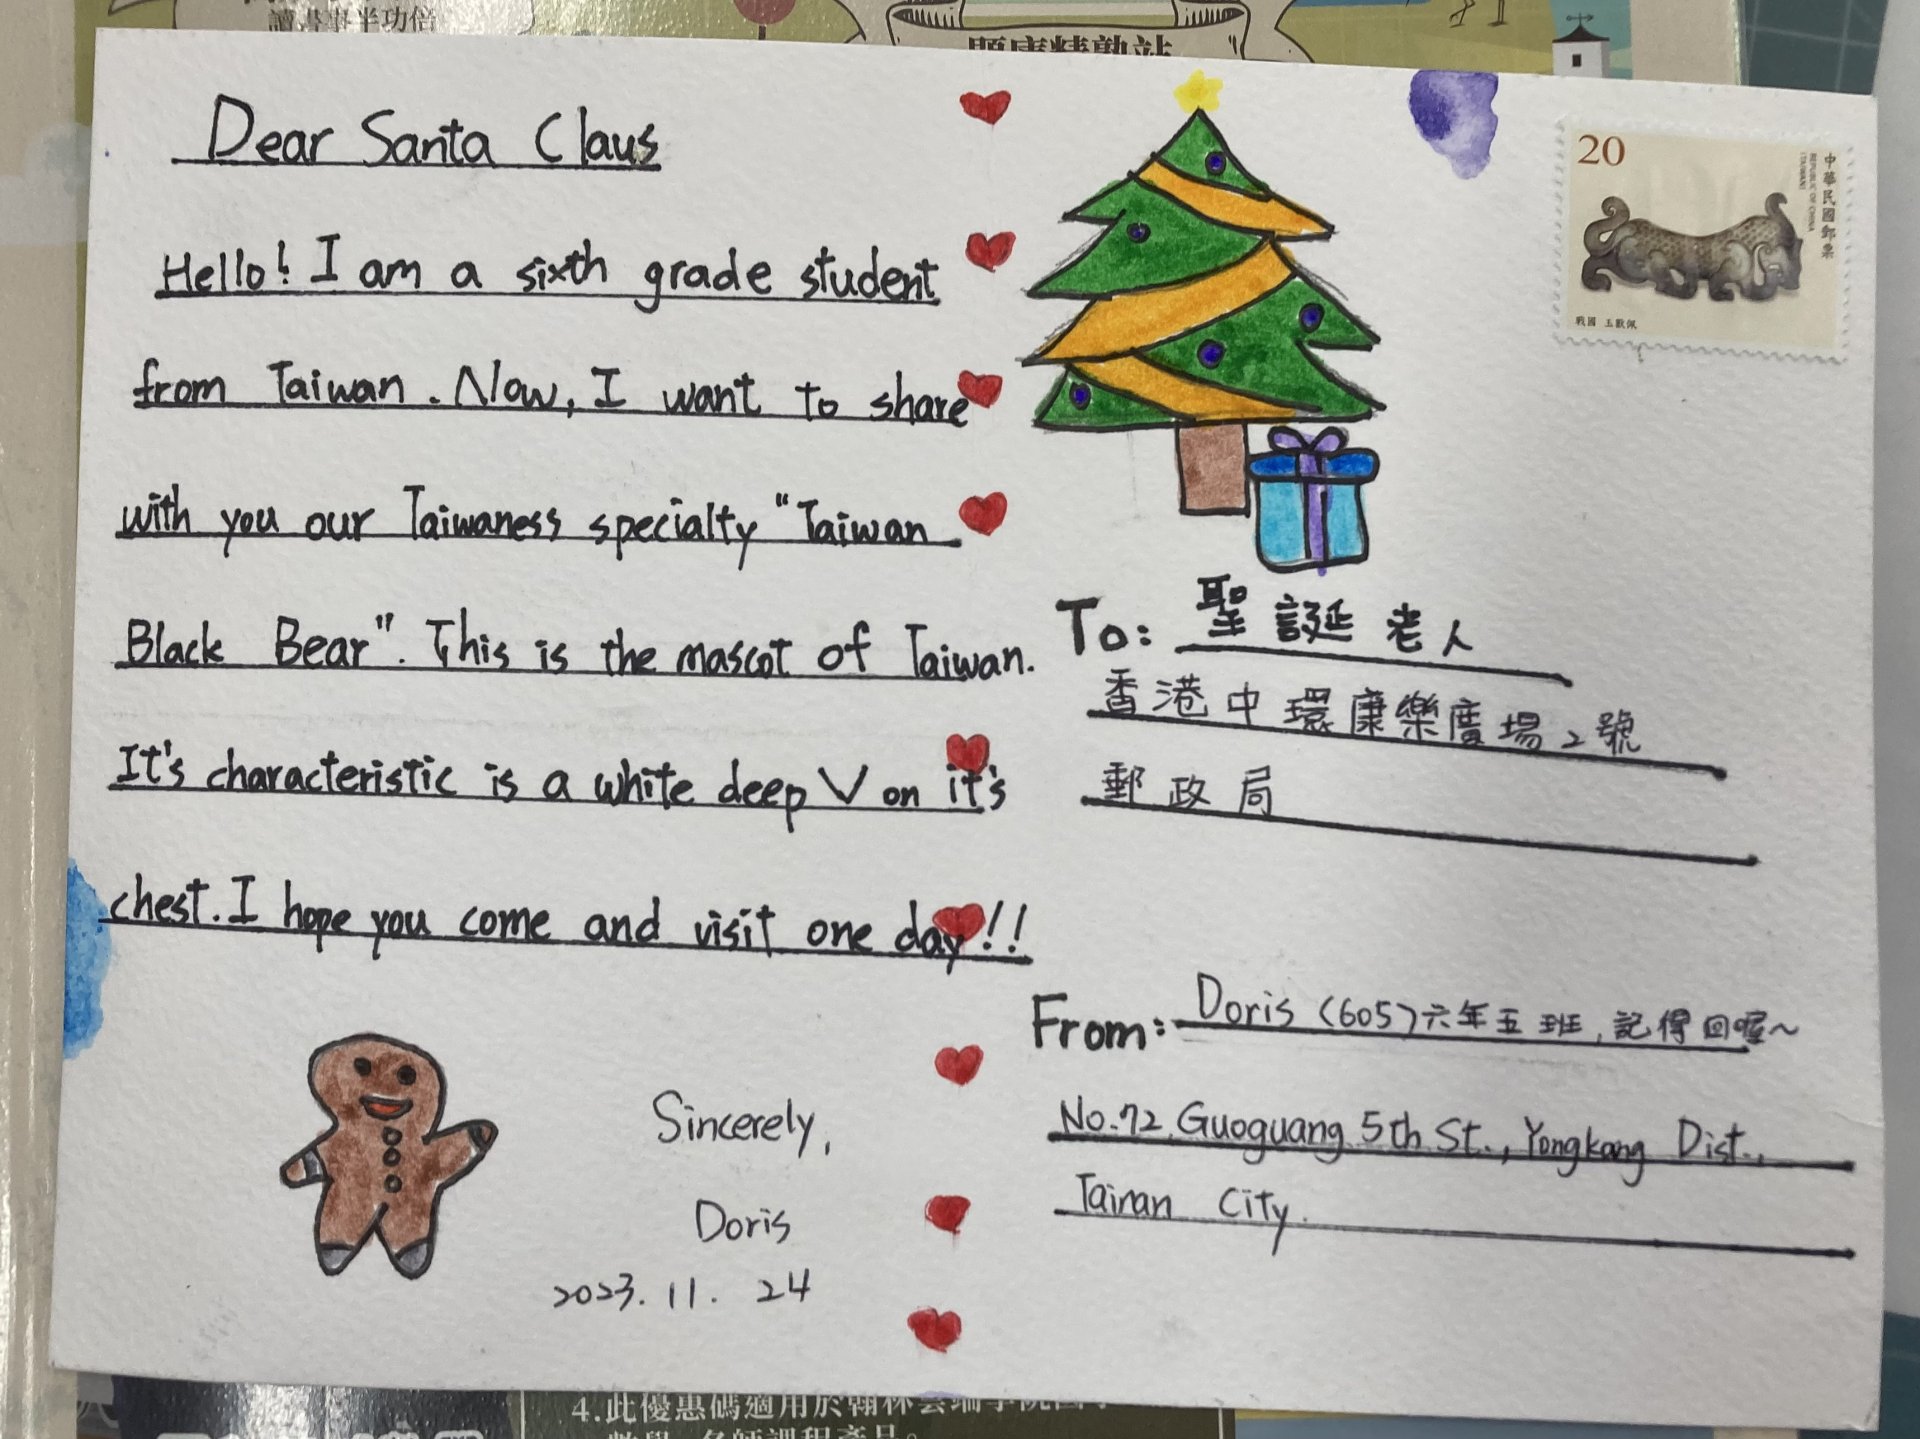 讀書事半功倍
題庫精熟站
Dear Santa Claus
Hello! I am a sixth grade student
from Taiwan. Now, I want to share
with you our Taiwaness specialty "Taiwan
Black Bear". This is the mascot of Taiwan.
It's characteristic is a white deep V on it's
chest. I hope you come and visit one day!!
Sincerely,
Doris
2023. 11. 24
20
中華民國郵票
REPUBLIC OF CHINA
(TAIWAN)
戰國 玉獸佩
To: 聖誕老人
香港中環康樂廣場2號
郵政局
From: Doris (605)六年五班,記得回喔~
No.72, Guoguang 5th St., Yongkang Dist.,
Tainan City.
4.此優惠碼適用於翰林雲端學院國小